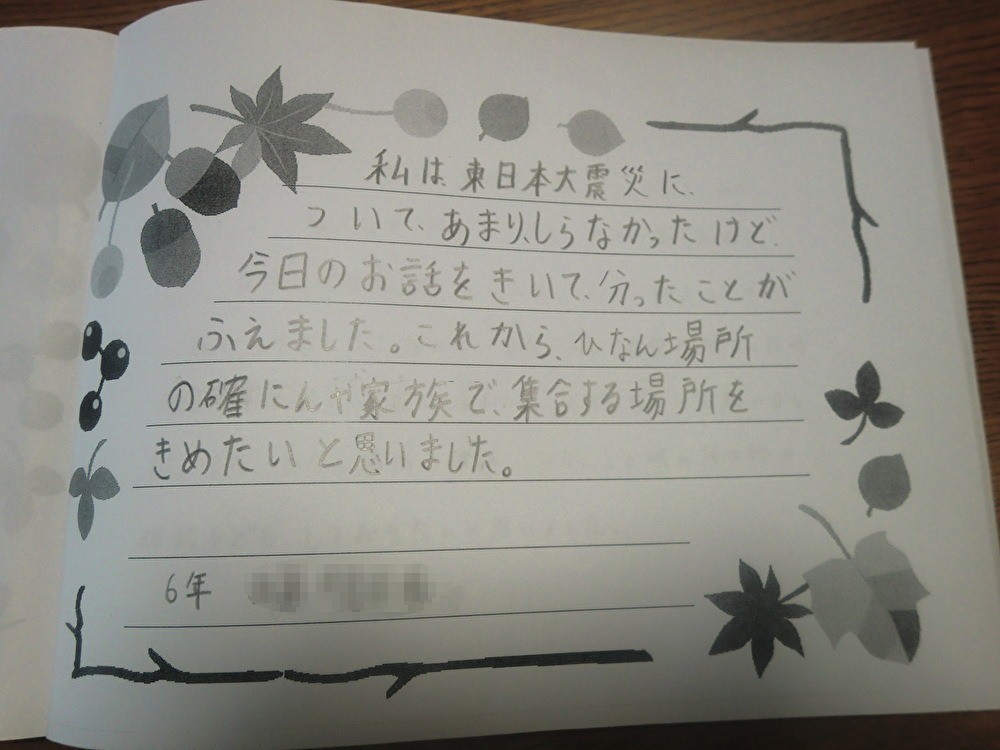 私は、東日本大震災に、
ついて、あまり、しらなかったけど、
今日のお話をきいて、分ったことが
ふえました。これから、ひなん場所
の確にんや家族で、集合する場所を
きめたいと思いました。
6年